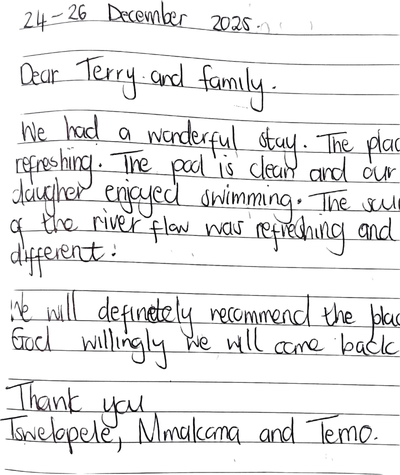 24-26 December 2025.
Dear Terry and family.
We had a wonderful stay. The plac
refreshing. The pool is clean and our
daugher enjoyed swimming. The sou
of the river flow was refreshing and
different.
We will definetely recommend the plac
God willingly we will come back
Thank you
Tswelopele, Mmakoma and Temo.